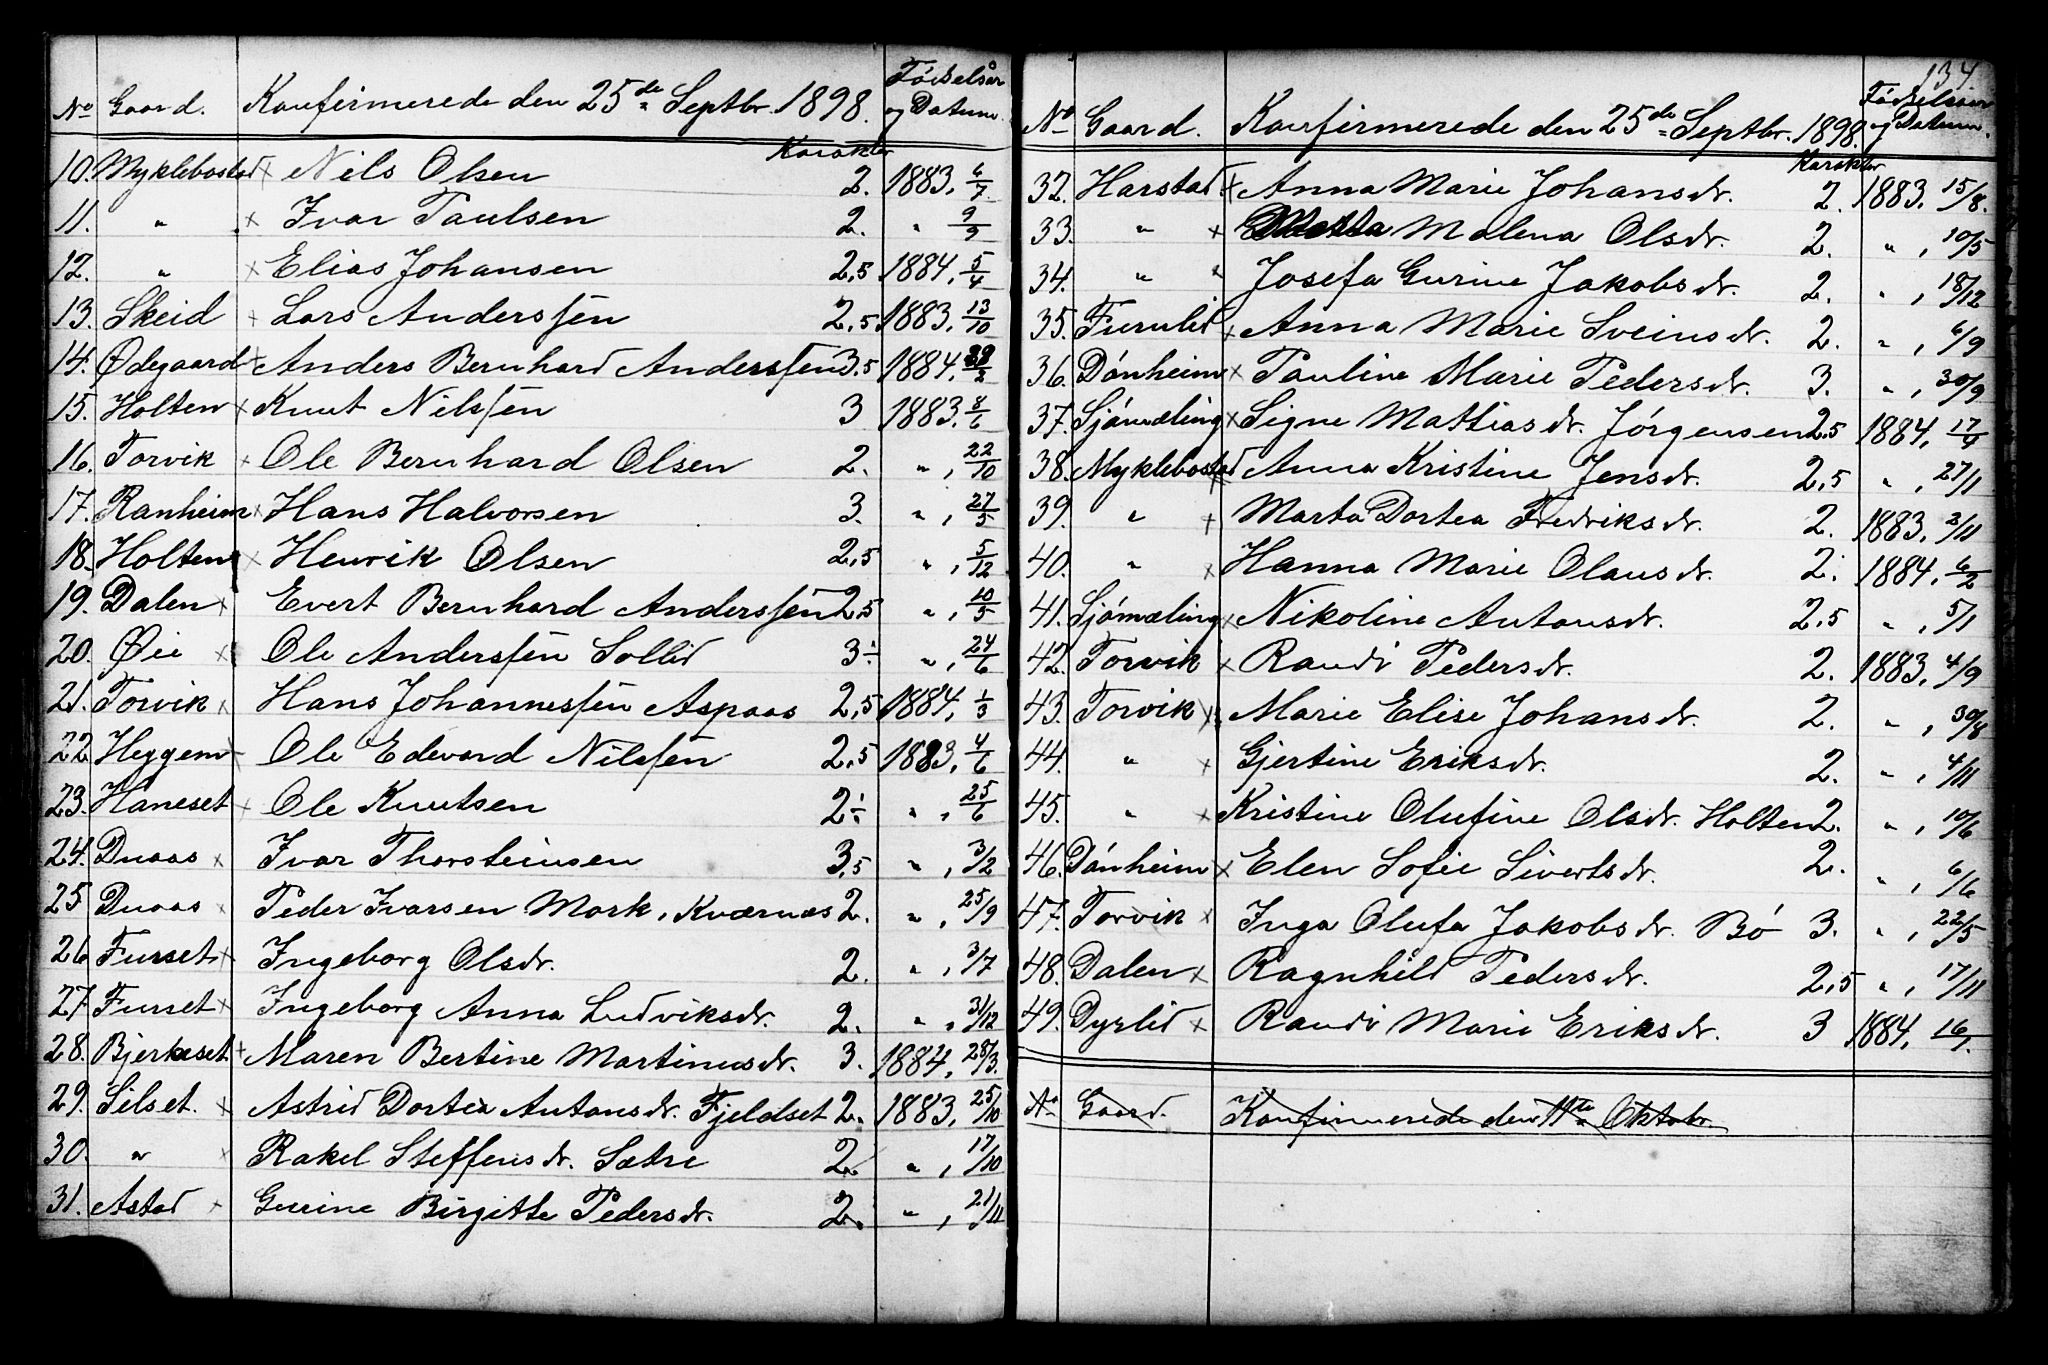 No Gaard. Konfirmerede den 25de Septbr. 1898. Fødselsår og Datum.
Karakter
10. Myklebostad x Nils Olsen 2. 1883, 6/7.
11. " x Ivar Paulsen 2. " 9/9
12. " x Elias Johansen 2,5 1884, 5/4
13. Skeid x Lars Anderssen 2,5 1883, 13/10
14. Ødegaard x Anders Bernhard Anderssen 3,5 1884, /2
15. Holten x Knut Nilssen 3 1883, 8/6
16. Torvik x Ole Bernhard Olsen 2. ", 22/10
17. Ranheim x Hans Halvorsen 3. ", 27/5
18. Holten x Henrik Olsen 2,5 ", 5/12
19. Dalen x Evert Bernhard Anderssen 2,5 ", 10/5
20. Øie x Ole Anderssen Sollid 3 ", 24/6
21. Torvik x Hans Johannessen Aspaas 2,5 1884, 1/3
22 Heggem x Ole Edvard Nilssen 2,5 1883, 4/6
23. Haneset x Ole Knutsen 2 ", 25/6
24. Duaas x Ivar Thorsteinsen 3,5 ", 3/2
25 Duaas x Peder Ivarsen Mork, Kværnæs 2. ", 25/9
26 Furset x Ingeborg Olsdr. 2. ", 3/7
27 Furset x Ingeborg Anna Ludviksdr. 2. ", 31/12
28. Bjerkeset x Maren Bertine Martinusdr. 3. 1884, 28/3.
29. Silset. x Astrid Dortea Antonsdr. Fjeldset 2. 1883, 25/10
30. " x Rakel Steffensdr. Sætre 2. ", 17/10
31. Astad x Gurine Birgitte Pedersdr. 2. ", 21/11
134.
No Gaard. Konfirmerede den 25de Septbr. 1898. Fødselsaar og Datum.
Karakter
32. Harstad x Anna Marie Johansdr. 2. 1883, 15/8.
33. " x Malena Olsdr. 2. ", 10/5
34. " x Josefa Gurine Jakobsdr. 2. ", 18/12
35. Furulid x Anna Marie Sveinsdr. 2. ", 6/9
36. Dønheim x Pauline Marie Pedersdr. 3. ", 30/9
37. Sjømæling x Signe Mattiasdr. Jørgensen 2,5 1884, 17/4
38. Myklebostad x Anna Kristine Jensdr. 2,5 ", 27/1
39. " x Marta Dortea Fredriksdr. 2. 1883, 2/11
40. " x Hanna Marie Olausdr. 2. 1884, 6/2
41. Sjømæling x Nikoline Antonsdr. 2,5 ", 5/1
42. Torvik x Randi Pedersdr. 2. 1883, 4/9
43. Torvik x Marie Elise Johansdr. 2. ", 30/8
44. " x Gjertine Eriksdr. 2. ", 4/11
45. " x Kristine Olufine Olsdr. Holten 2. ", 10/6
46. Dønheim x Elen Sofie Sivertsdr. 2. ", 6/6
47. Torvik x Inga Olufa Jakobsdr. Bø 3. ", 22/5
48. Dalen x Ragnhild Pedersdr. 2,5 ", 17/11
49. Dyrlid x Randi Marie Eriksdr. 3 1884, 16/1.
No Gaard. Konfirmerede den 11te Oktobr.